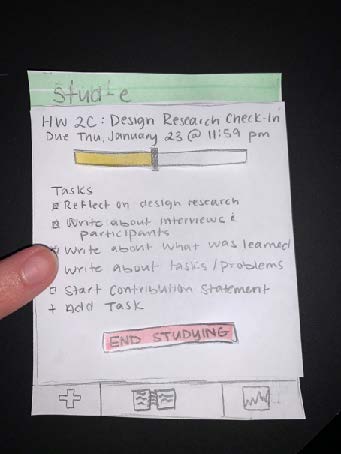 Studie
HW 2C: Design Research Check-In
Due Thu, January 23 @ 11:59 pm
Tasks
Reflect on design research
Write about interviews &
participants
Write about what was learned
Write about tasks/problems
Start Contribution Statement
+ Add Task
END STUDYING